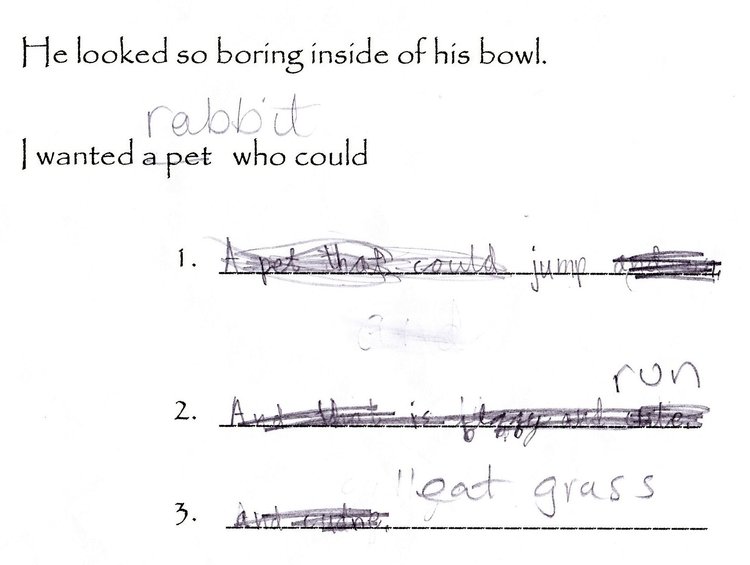 He looked so boring inside of his bowl.
rabbit
I wanted a pet who could
1. A pet that could jump
and
run
2. And that is and cute.
eat grass
3. and